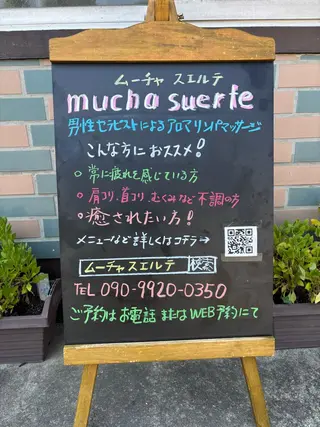 ムーチャ スエルテ
mucho suerte
男性セラピストによるアロマリンパマッサージ
こんな方におススメ!
○常に疲れを感じている方
○肩コリ、首コリ、むくみなど不調の方
○癒されたい方!
メニューなど詳しくはコチラ→
ムーチャ スエルテ 検索
TEL 090-9920-0350
ご予約はお電話またはWEB予約にて